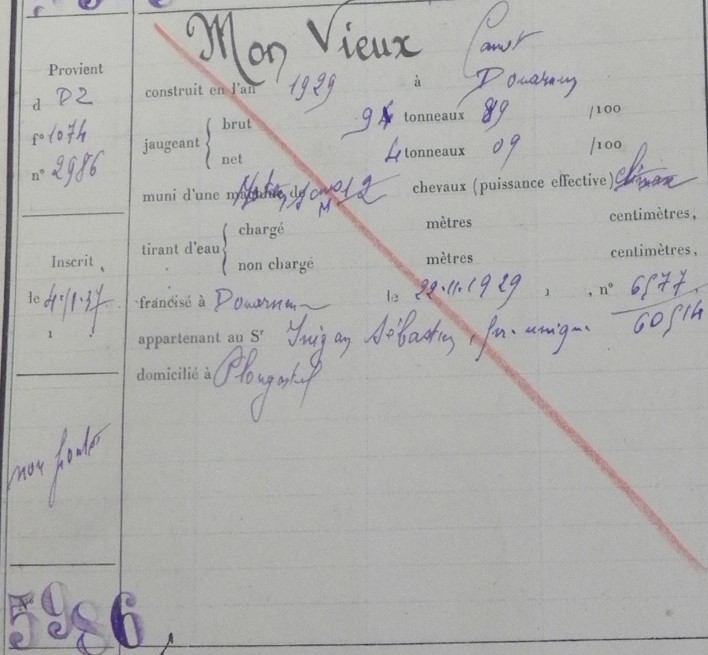 Mon Vieux Canot
Provient
d D2
fº 1074
nº 2986
Inscrit,
le 4.1.37
non ponté
5986
construit en l'an 1929 à Douarnen
jaugeant { brut tonneaux 89 /100
net 4 tonneaux 09 /100
muni d'une 12 chevaux (puissance effective)
tirant d'eau { chargé mètres centimètres,
non chargé mètres centimètres,
francisé à Douarnen le 22.11.1929, nº 6577
appartenant au Sr Sébastien, pr. unique
domicilié à Plougastel